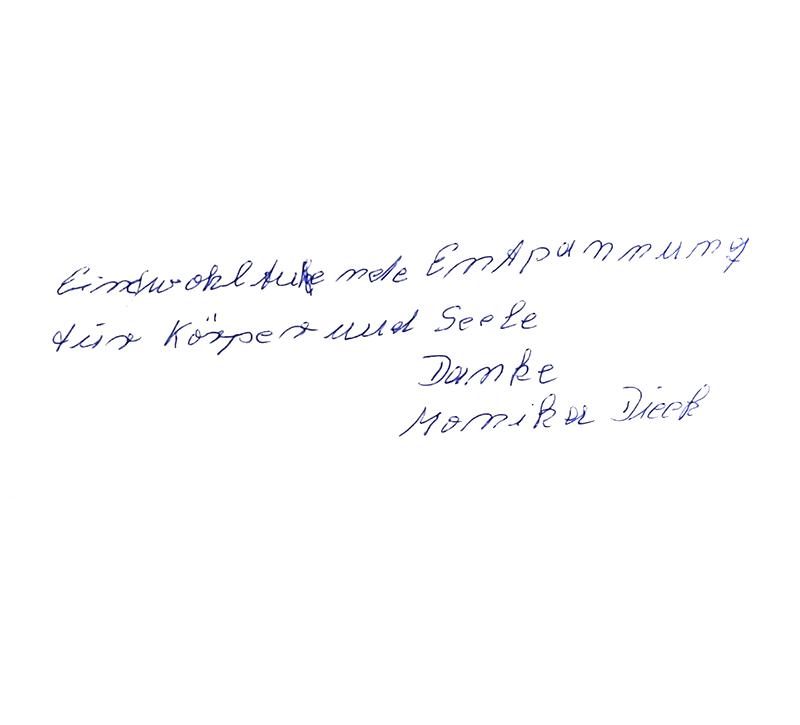 Eine wohltuhende Entspannung
für Körper und Seele
Danke
Monika Dieck